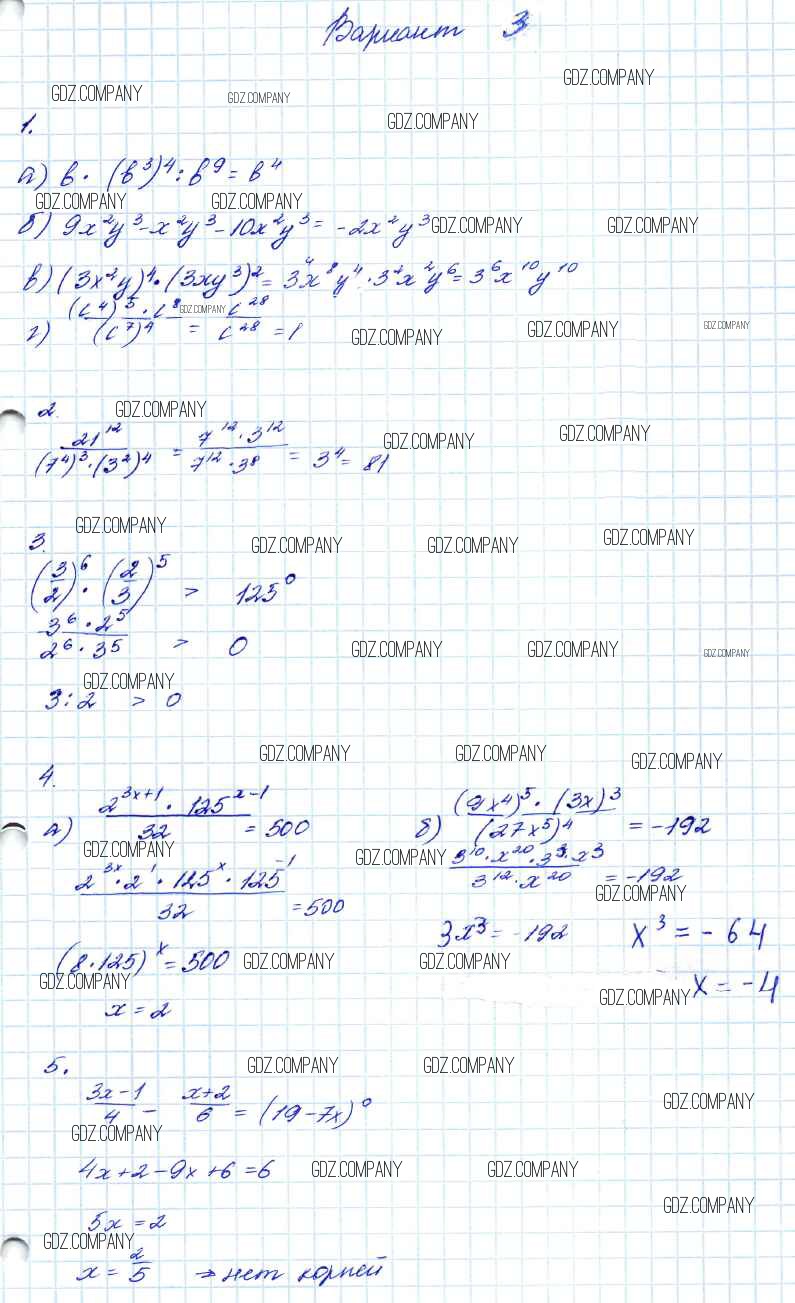 Вариант 3
GDZ.COMPANY GDZ.COMPANY GDZ.COMPANY
1. GDZ.COMPANY
а) в · (в³)⁴ : в⁹ = в⁴
GDZ.COMPANY GDZ.COMPANY
б) 9x²y³ - x²y³ - 10x²y³ = -2x²y³ GDZ.COMPANY GDZ.COMPANY
в) (3x²y)⁴ · (3xy³)² = 3⁴x⁸y⁴ · 3²x²y⁶ = 3⁶x¹⁰y¹⁰
г) (c⁴)⁵ · c⁸ / (c⁷)⁴ = c²⁸ / c²⁸ = 1
GDZ.COMPANY GDZ.COMPANY GDZ.COMPANY GDZ.COMPANY
2. GDZ.COMPANY
21¹² / (7⁴)³ · (3²)⁴ = 7¹² · 3¹² / 7¹² · 3⁸ = 3⁴ = 81
GDZ.COMPANY GDZ.COMPANY
GDZ.COMPANY
3. GDZ.COMPANY GDZ.COMPANY GDZ.COMPANY
(3/2)⁶ · (2/3)⁵ > 125⁰
3⁶ · 2⁵ / 2⁶ · 3⁵ > 0
GDZ.COMPANY GDZ.COMPANY GDZ.COMPANY
GDZ.COMPANY
3 : 2 > 0
GDZ.COMPANY GDZ.COMPANY GDZ.COMPANY
4.
а) 2³ˣ⁺¹ · 125ˣ⁻¹ / 32 = 500
б) (9x⁴)⁵ · (3x)³ / (27x⁵)⁴ = -192
GDZ.COMPANY GDZ.COMPANY
2³ˣ · 2¹ · 125ˣ · 125⁻¹ / 32 = 500
3¹⁰ · x²⁰ · 3³ · x³ / 3¹² · x²⁰ = -192
GDZ.COMPANY
3x³ = -192 x³ = -64
(8 · 125)ˣ = 500 GDZ.COMPANY GDZ.COMPANY
GDZ.COMPANY GDZ.COMPANY x = -4
x = 2
5. GDZ.COMPANY GDZ.COMPANY
3x-1 / 4 - x+2 / 6 = (19-7x)⁰
GDZ.COMPANY
GDZ.COMPANY
4x+2-9x+6=6 GDZ.COMPANY GDZ.COMPANY
GDZ.COMPANY
5x = 2
GDZ.COMPANY
x = 2/5 → нет корней